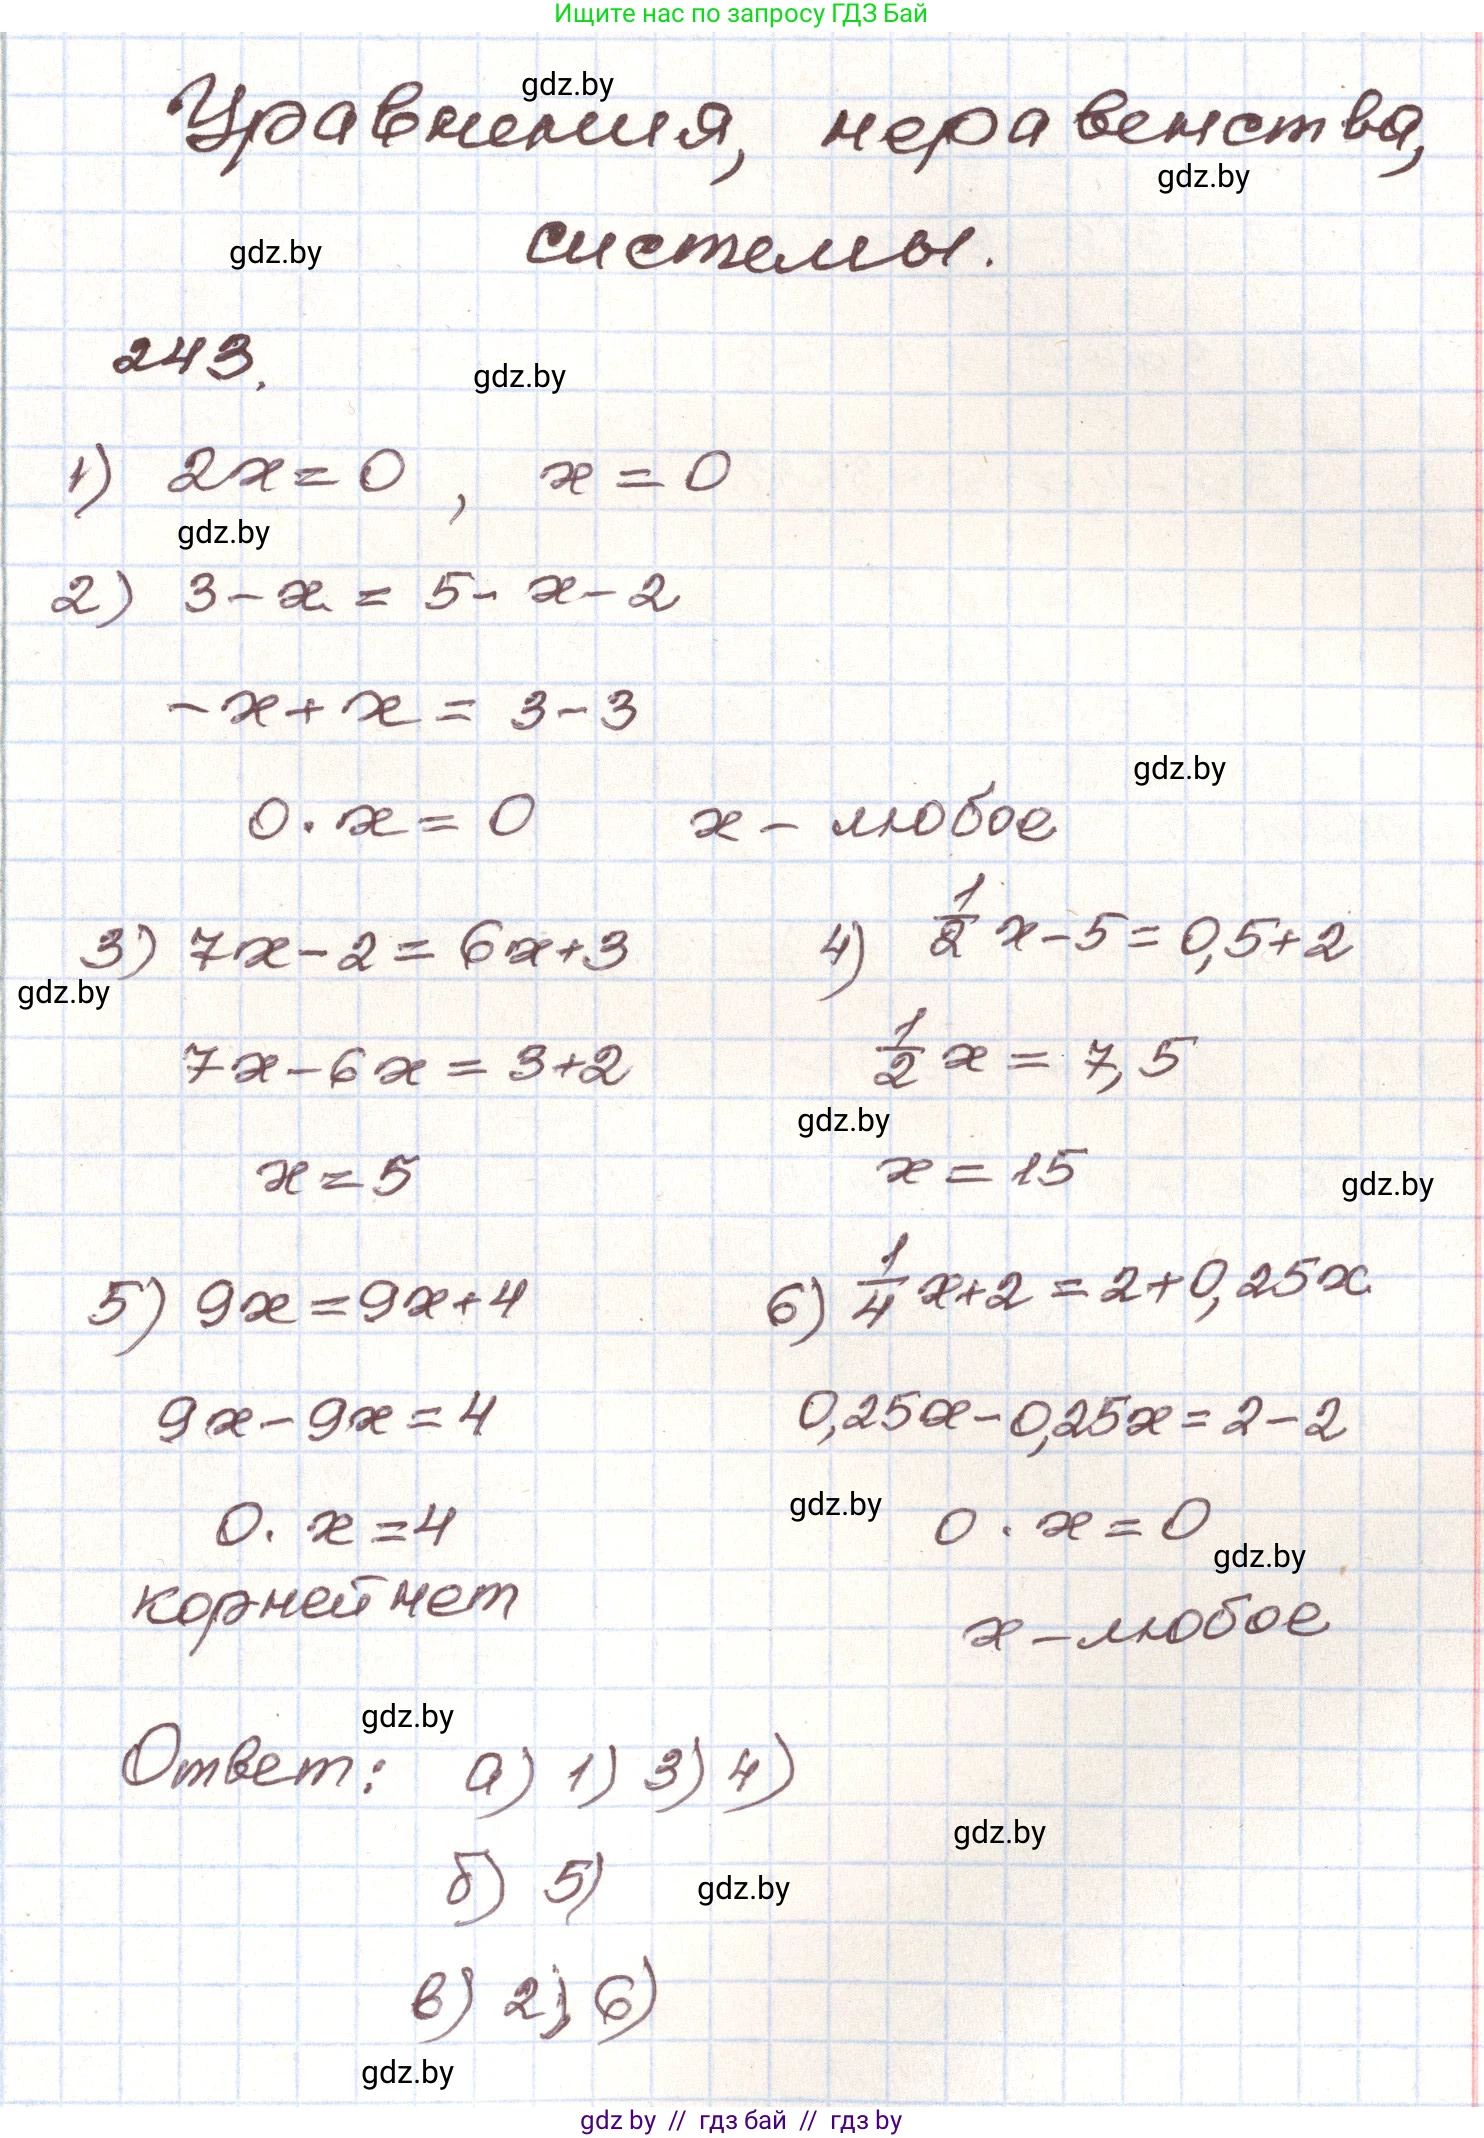 Ищите нас по запросу ГДЗ Бай
gdz.by
Уравнения, неравенства,
gdz.by
gdz.by
системы.
243.
gdz.by
1) 2x = 0 , x = 0
gdz.by
2) 3 - x = 5 - x - 2
-x + x = 3 - 3
gdz.by
0 · x = 0 x - любое
3) 7x - 2 = 6x + 3 4) 1/2 x - 5 = 0,5 + 2
gdz.by
7x - 6x = 3 + 2 1/2 x = 7,5
gdz.by
x = 5 x = 15
gdz.by
5) 9x = 9x + 4 6) 1/4 x + 2 = 2 + 0,25x
9x - 9x = 4 0,25x - 0,25x = 2 - 2
gdz.by
0 · x = 4 0 · x = 0
gdz.by
корней нет x - любое
gdz.by
Ответ: а) 1) 3) 4)
gdz.by
б) 5)
gdz.by
в) 2) 6)
gdz.by
gdz by // гдз бай // гдз by